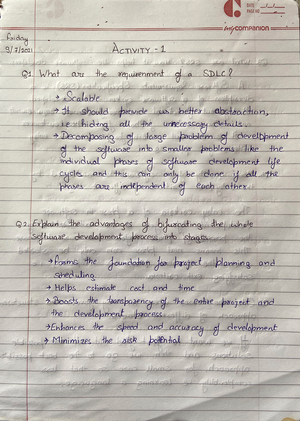 my companion
Friday
9/7/2021
ACTIVITY - 1
Q1. What are the requirement of a SDLC?
→ Scalable
→ It should provide us better abstraction,
i.e. hiding all the unnecessary details.
→ Decomposing of large problem of development
of the software into smaller problems like the
individual phases of software development life
cycles and this can only be done if all the
phases are independent of each other.
Q2. Explain the advantages of bifurcating the whole
software development process into stages.
→ Forms the foundation for project planning and
sheduling
→ Helps estimate cost and time
→ Boosts the transparency of the entire project and
the development process
→ Enhances the speed and accuracy of development
→ Minimizes the risk potential